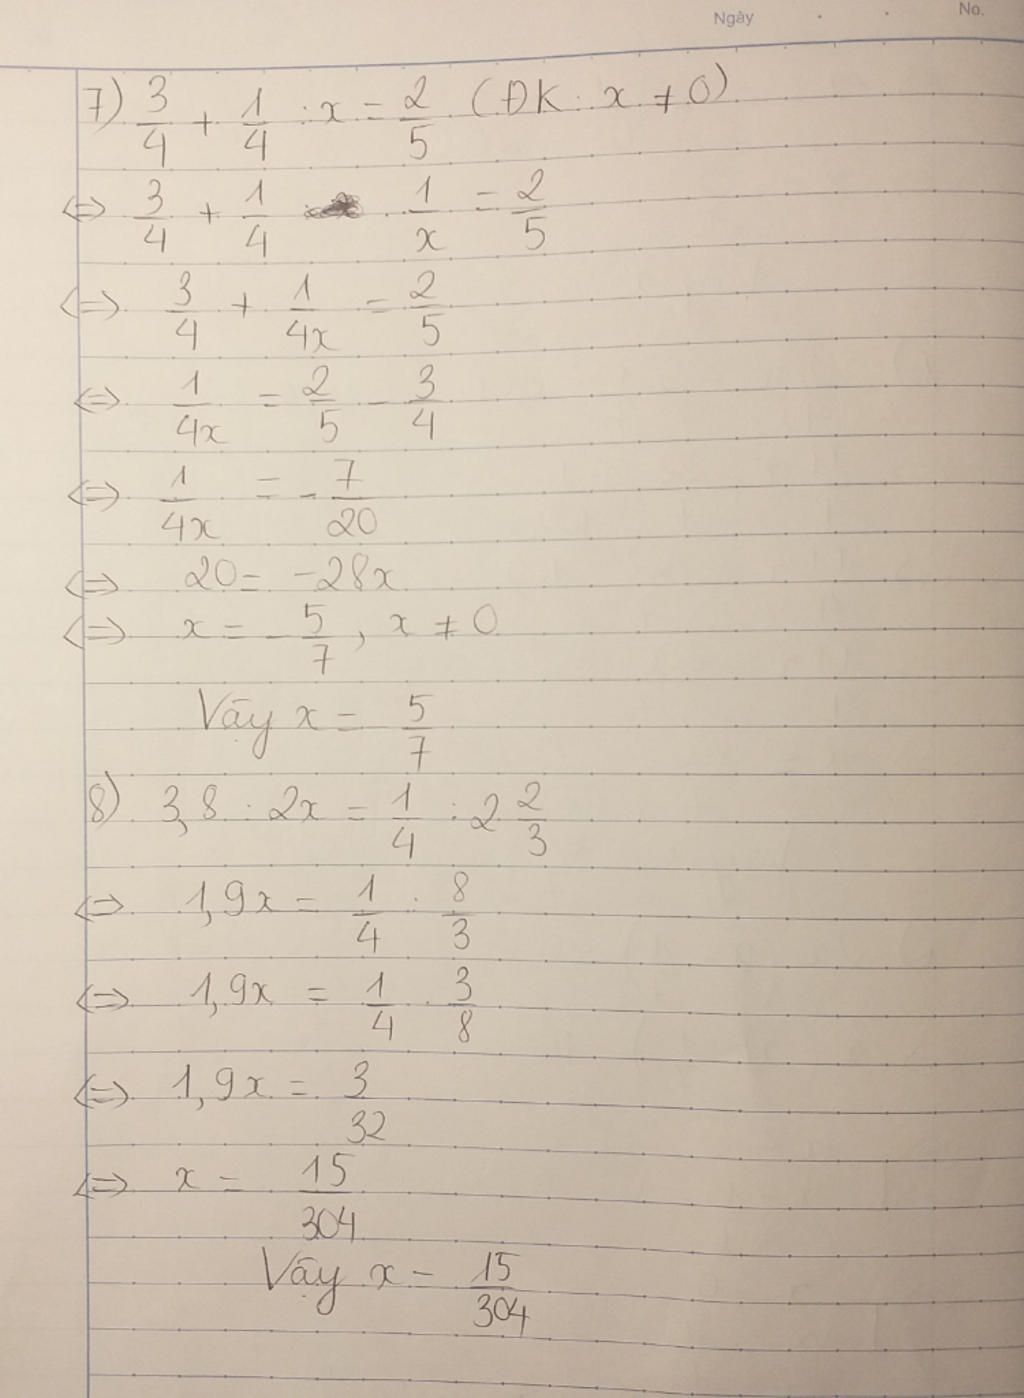 Ngày No.
7) 3/4 + 1/4 : x = 2/5 (ĐK: x ≠ 0)
⇔ 3/4 + 1/4 . 1/x = 2/5
⇔ 3/4 + 1/4x = 2/5
⇔ 1/4x = 2/5 - 3/4
⇔ 1/4x = - 7/20
⇔ 20 = -28x
⇔ x = - 5/7, x ≠ 0
Vậy x = 5/7
8) 3,8 : 2x = 1/4 : 2 2/3
⇔ 1,9x = 1/4 : 8/3
⇔ 1,9x = 1/4 . 3/8
⇔ 1,9x = 3/32
⇔ x = 15/304
Vậy x = 15/304